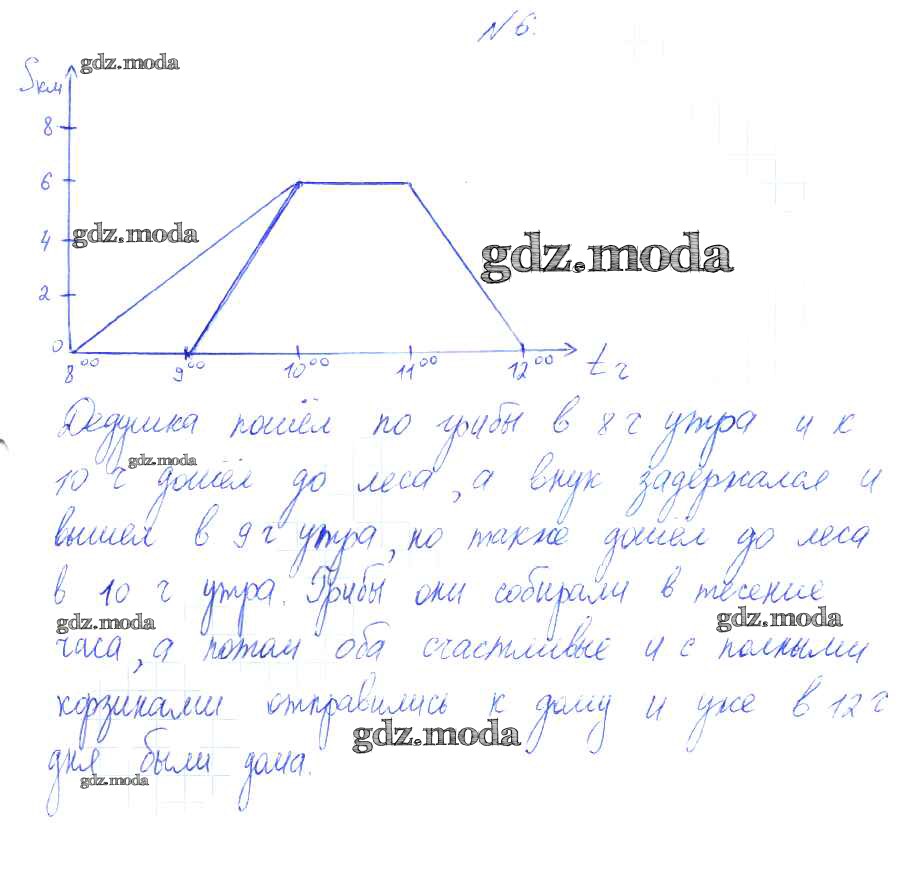 №6.
gdz.moda
S км
8
6
gdz.moda
4
gdz.moda
2
0
8⁰⁰ 9⁰⁰ 10⁰⁰ 11⁰⁰ 12⁰⁰ t ч
Дедушка пошёл по грибы в 8 ч утра и к
gdz.moda
10 ч дошёл до леса, а внук задержался и
вышел в 9 ч утра, но также дошёл до леса
в 10 ч утра. Грибы они собирали в течение
gdz.moda gdz.moda
часа, а потом оба счастливые и с полными
корзинами отправились к дому и уже в 12 ч
gdz.moda
дня были дома.
gdz.moda